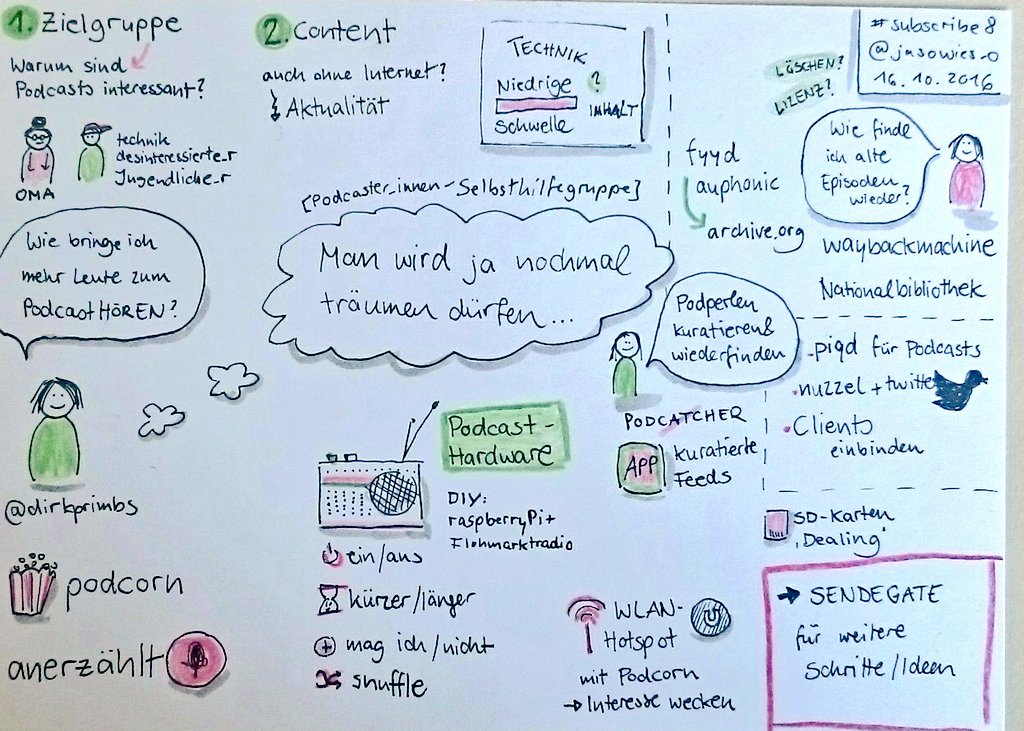 1. Zielgruppe
Warum sind
Podcasts interessant?
OMA
technik
desinteressierte_r
Jugendliche_r
Wie bringe ich
mehr Leute zum
Podcast HÖREN?
@dirkprimbs
podcorn
anerzählt
2. Content
auch ohne Internet?
Aktualität
TECHNIK
Niedrige ?
INHALT
Schwelle
[Podcaster_innen-Selbsthilfegruppe]
Man wird ja nochmal
träumen dürfen...
Podcast-
Hardware
DIY:
raspberryPi+
Flohmarktradio
ein/aus
kürzer/länger
mag ich/nicht
shuffle
WLAN-
Hotspot
mit Podcorn
→ Interesse wecken
#subscribe8
@jasowies_o
16.10.2016
LÖSCHEN?
LIZENZ?
Wie finde
ich alte
Episoden
wieder?
fyyd
auphonic
archive.org
waybackmachine
Nationalbibliothek
Podperlen
kuratieren&
wiederfinden
PODCATCHER
APP
kuratierte
Feeds
piqd für Podcasts
nuzzel + twitter
Clients
einbinden
SD-Karten
'Dealing'
→ SENDEGATE
für weitere
Schritte/Ideen